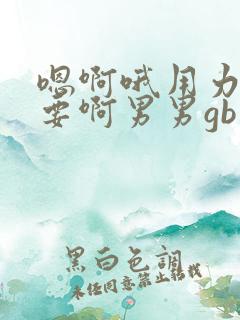 嗯啊哦用力
要啊男男gb
黑白色調
未经同意禁止转载